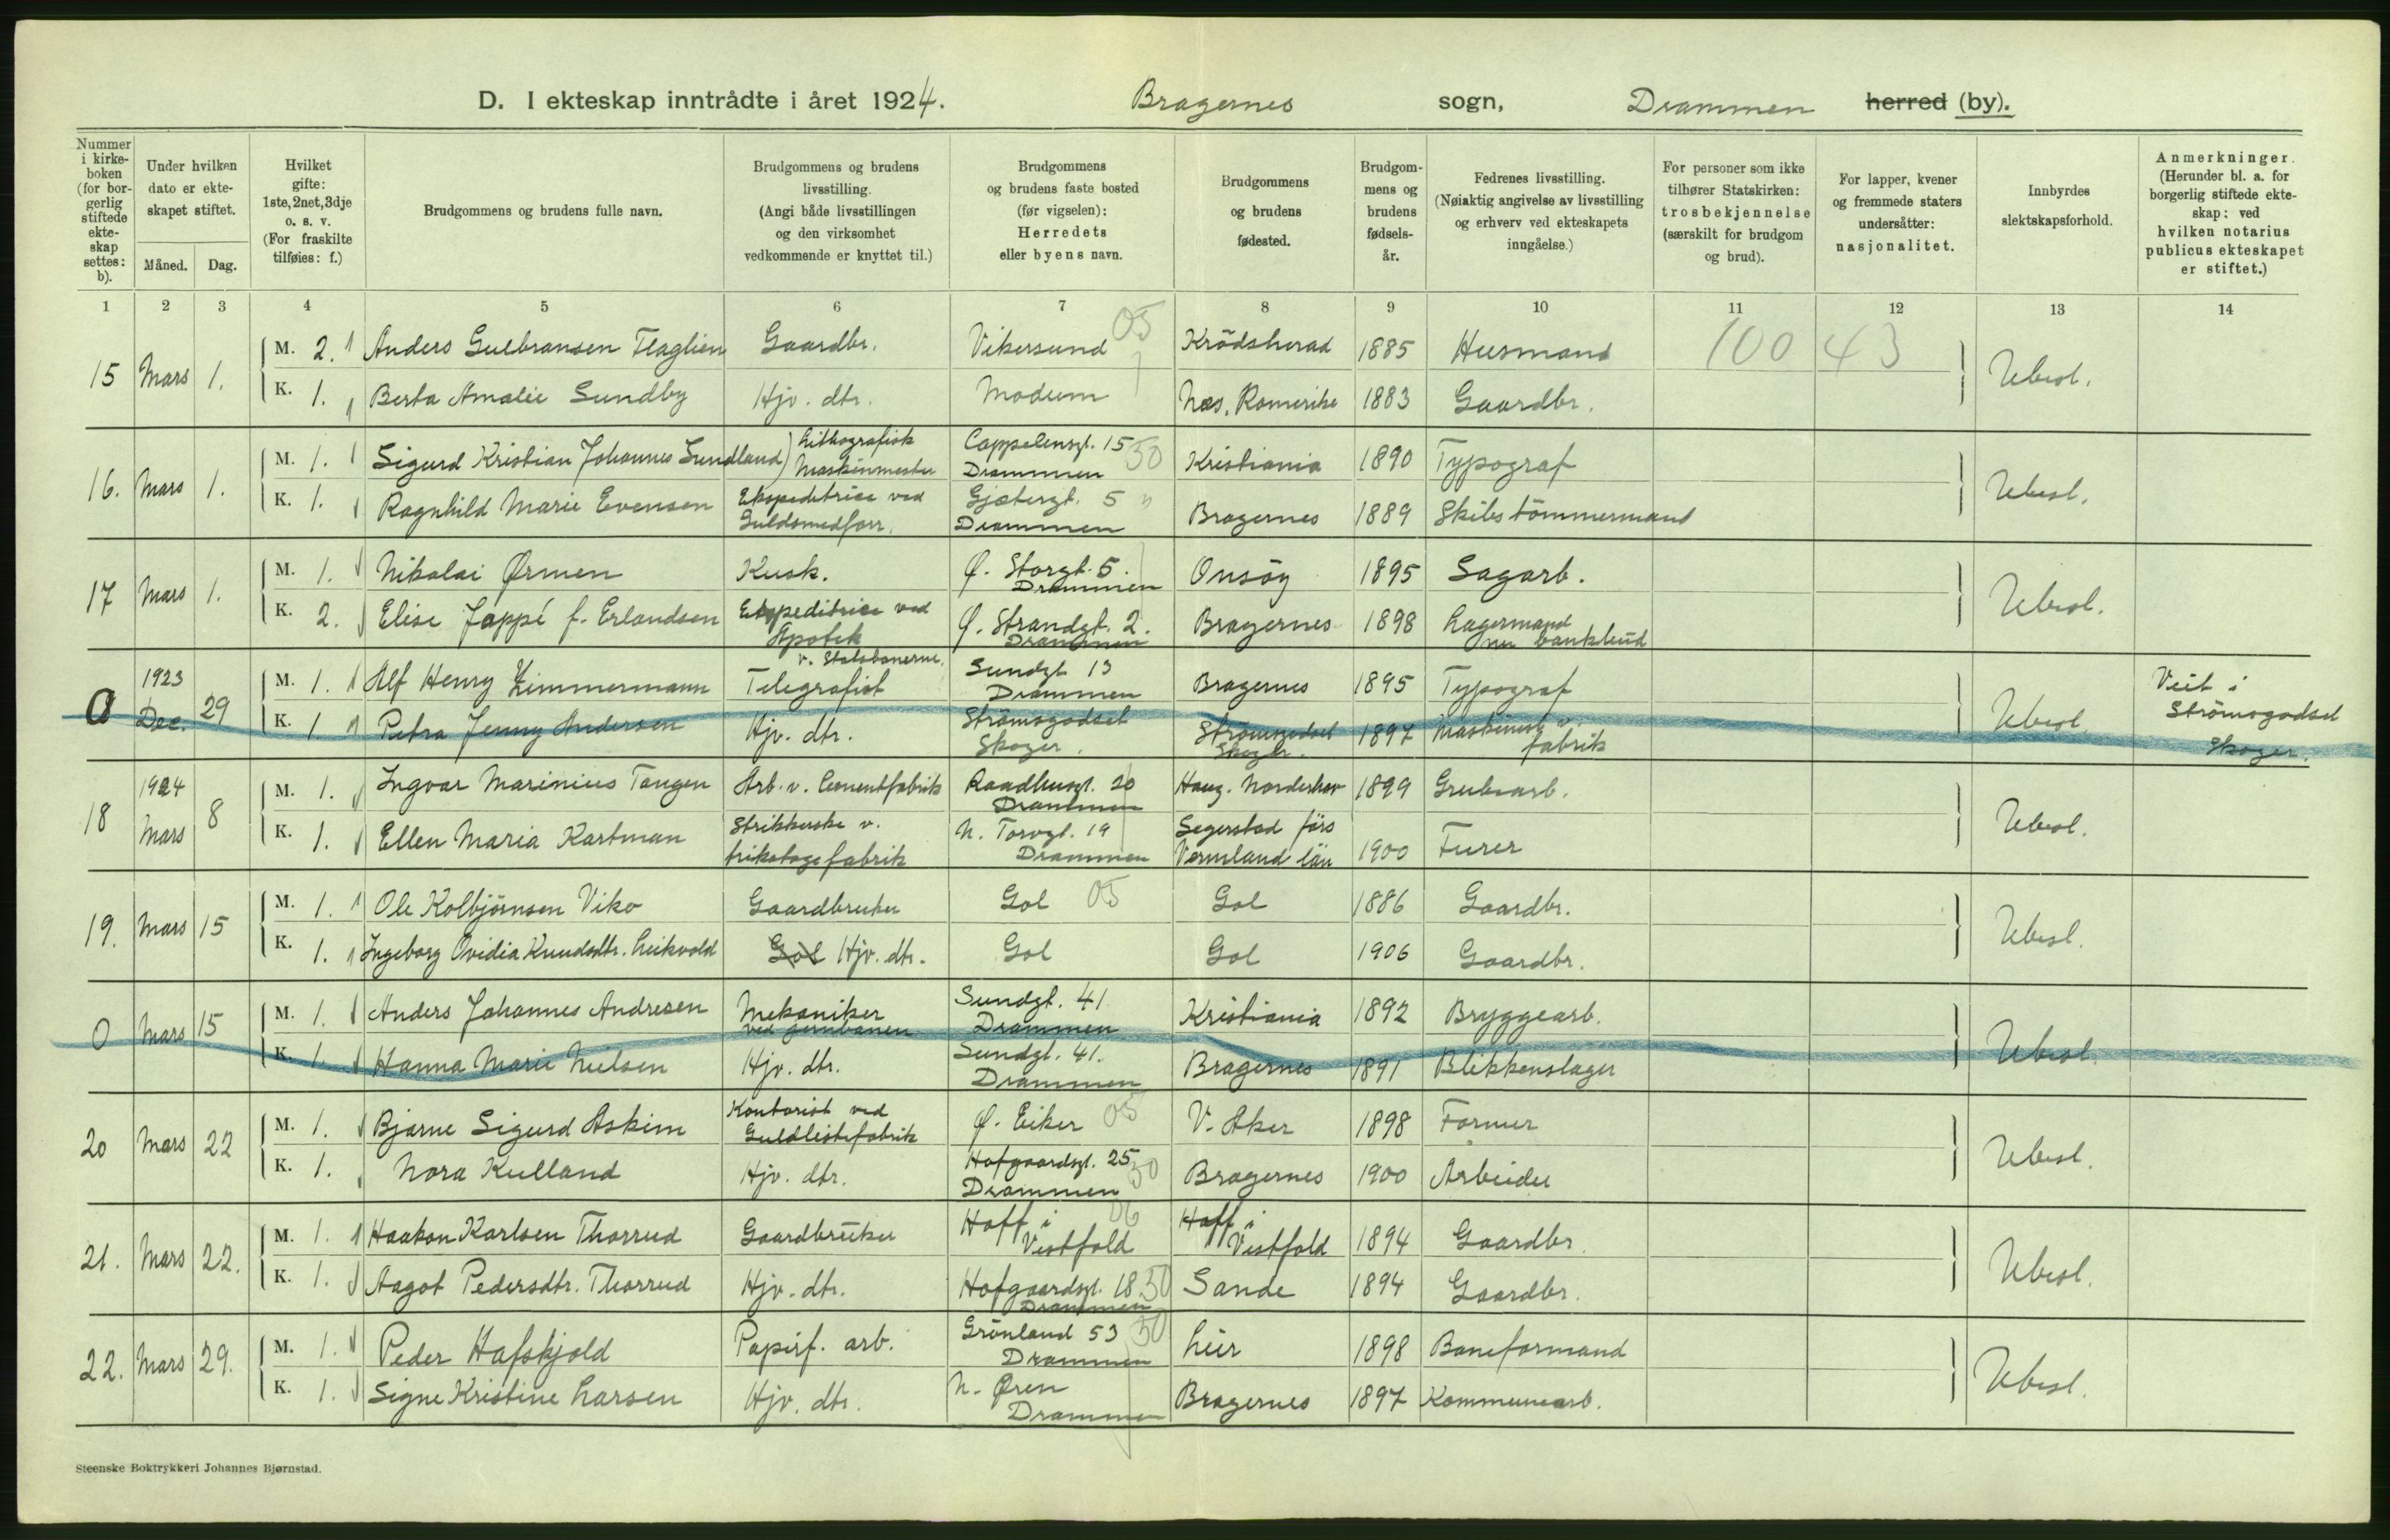 D. I ekteskap inntrådte i året 1924. Bragernes sogn, Drammen herred (by).
Nummer i kirke-boken (for bor-gerlig stiftede ekte-skap settes: b).
Under hvilken dato er ekte-skapet stiftet.
Måned. Dag.
Hvilket gifte: 1ste, 2net, 3dje o. s. v. (For fraskilte tilføies: f.)
Brudgommens og brudens fulle navn.
Brudgommens og brudens livsstilling. (Angi både livsstillingen og den virksomhet vedkommende er knyttet til.)
Brudgommens og brudens faste bosted (før vigselen): Herredets eller byens navn.
Brudgommens og brudens fødested.
Brudgom-mens og brudens fødsels-år.
Fedrenes livsstilling. (Nøiaktig angivelse av livsstilling og erhverv ved ekteskapets inngåelse.)
For personer som ikke tilhører Statskirken: trosbekjennelse (særskilt for brudgom og brud).
For lapper, kvener og fremmede staters undersåtter: nasjonalitet.
Innbyrdes slektskapsforhold.
Anmerkninger. (Herunder bl. a. for borgerlig stiftede ekte-skap: ved hvilken notarius publicus ekteskapet er stiftet.)
1 2 3 4 5 6 7 8 9 10 11 12 13 14
15 Mars 1. M. 2. Anders Gulbransen Flaglien Gaardbr. Vikersund 05 Krödsherad 1885 Husmand 100 43 Ubesl.
K. 1. Berta Amalie Sundby Hjv. dtr. Modum Næs, Romerike 1883 Gaardbr.
16. Mars 1. M. 1. Sigurd Kristian Johannes Sundland) Lithografisk Maskinmester Cappelensgt. 15 Drammen 30 Kristiania 1890 Typograf Ubesl.
K. 1. Ragnhild Marie Evensen Ekspeditrice ved Guldsmedforr. Gjætergt. 5 " Drammen Bragernes 1889 Skibstömmermand
17 Mars 1. M. 1. Nikolai Ørmen Kusk. Ø. Storgt. 5. Drammen Onsöy 1895 Sagarb. Ubesl.
K. 2. Elise Jappé f. Erlandsen Ekspeditrice ved Apotek Ø. Strandgt. 2. Drammen Bragernes 1898 Lagermand nu bankbud
0 1923 Dec. 29 M. 1. Alf Henry Zimmermann Telegrafist v. Statsbanerne. Sundgt 13 Drammen Bragernes 1895 Typograf Ubesl. Viet i Strömsgodset Skoger.
K. 1 Petra Jenny Andersen Hjv. dtr. Strömsgodset Skoger. Strömsgodset Skoger. 1897 Maskinarb. v. fabrik
18 1924 Mars 8 M. 1. Ingvar Marinius Tangen Arb. v. Cementfabrik Raadhusgt. 20 Drammen Haug. Norderhov 1899 Grubearb. Ubesl.
K. 1. Ellen Maria Kartman Strikkerske v. trikotagefabrik N. Torvgt. 19 Drammen Segerstad förs Vermland län 1900 Furer
19. Mars 15 M. 1. Ole Kolbjörnsen Viko Gaardbruker Gol 05 Gol 1886 Gaardbr. Ubesl.
K. 1. Ingeborg Ovidia Knudsdtr. Leikvold Gol Hjv. dtr. Gol Gol 1906 Gaardbr.
0 Mars 15 M. 1. Anders Johannes Andresen Mekaniker ved jernbanen Sundgt. 41 Drammen Kristiania 1892 Bryggearb. Ubesl.
K. 1. Hanna Marie Nielsen Hjv. dtr. Sundgt. 41. Drammen Bragernes 1891 Blikkenslager
20 Mars 22 M. 1. Bjarne Sigurd Askim Kontorist ved Guldlistefabrik Ø. Eiker 05 V. Aker 1898 Former Ubesl.
K. 1. Nora Kulland Hjv. dtr. Hofgaardsgt. 25 Drammen 30 Bragernes 1900 Arbeider
21. Mars 22. M. 1. Haakon Karlsen Thorrud Gaardbruker Hoff i Vestfold 06 Hoff i Vestfold 1894 Gaardbr. Ubesl.
K. 1. Aagot Pedersdtr. Thorrud Hjv. dtr. Hofgaardsgt. 18 30 Drammen Sande 1894 Gaardbr.
22. Mars 29. M. 1. Peder Hafskjold Papirf. arb. Grönland 53 Drammen 30 Lier 1898 Baneformand Ubesl.
K. 1. Signe Kristine Larsen Hjv. dtr. N. Øren Drammen Bragernes 1897 Kommunearb.
Steenske Boktrykkeri Johannes Bjørnstad.